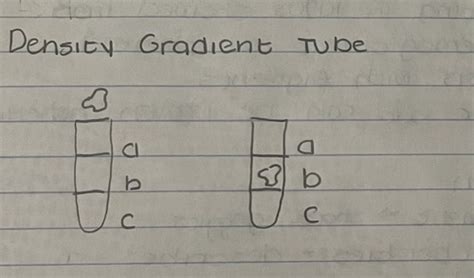 Density Gradient Tube
a a
b b
c c